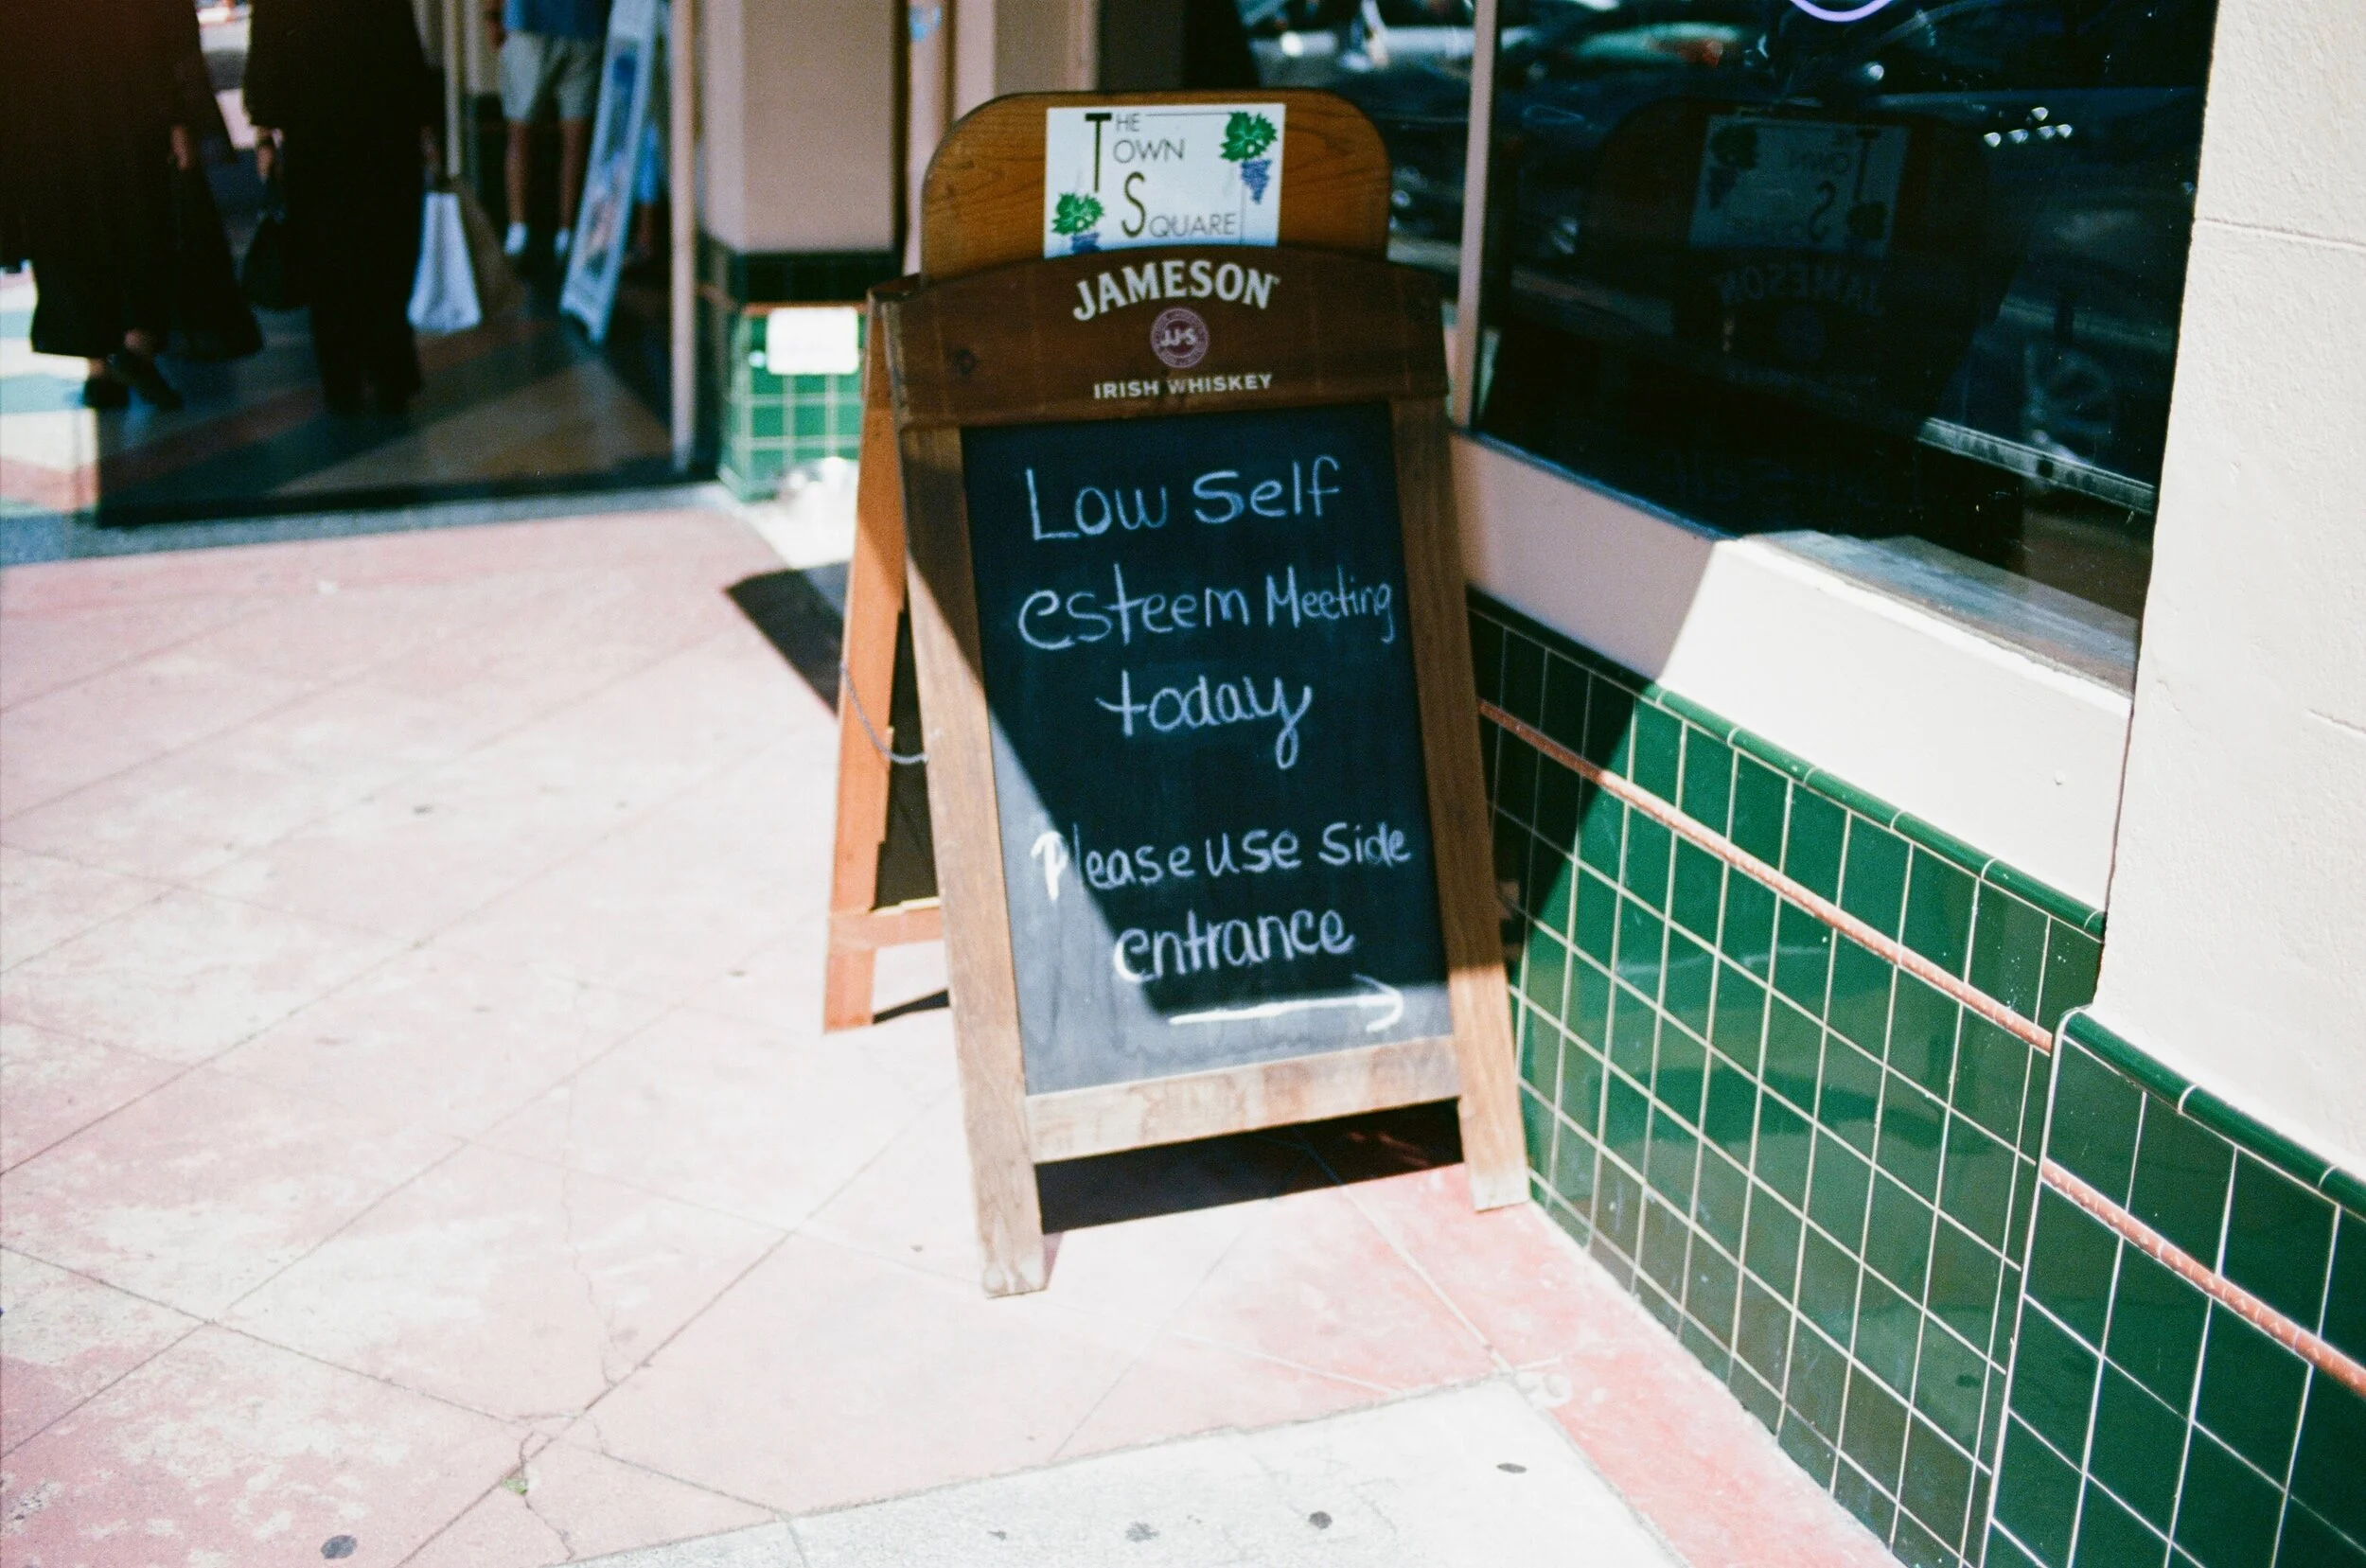 THE
TOWN
SQUARE
JAMESON
JJ&S
IRISH WHISKEY
Low Self
esteem Meeting
today
Please use side
entrance
→